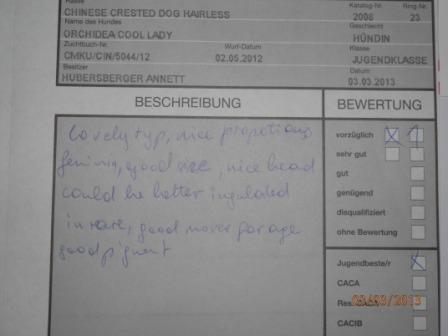 Rasse
CHINESE CRESTED DOG HAIRLESS
Katalog-Nr.
2008
Ring-Nr.
23
Name des Hundes
ORCHIDEA COOL LADY
Geschlecht
HÜNDIN
Zuchtbuch-Nr.
CMKU/CIN/5044/12
Wurf-Datum
02.05.2012
Klasse
JUGENDKLASSE
Besitzer
HUBERSBERGER ANNETT
Datum:
03.03.2013
BESCHREIBUNG
Lovely typ, nice propotions
feminin, good size, nice head
could be better
in rare, good mover for age
good pigment
BEWERTUNG
vorzüglich X 1
sehr gut
gut
genügend
disqualifiziert
ohne Bewertung
Jugendbeste/r X
CACA
Res. CACA
CACIB
03/03/2013